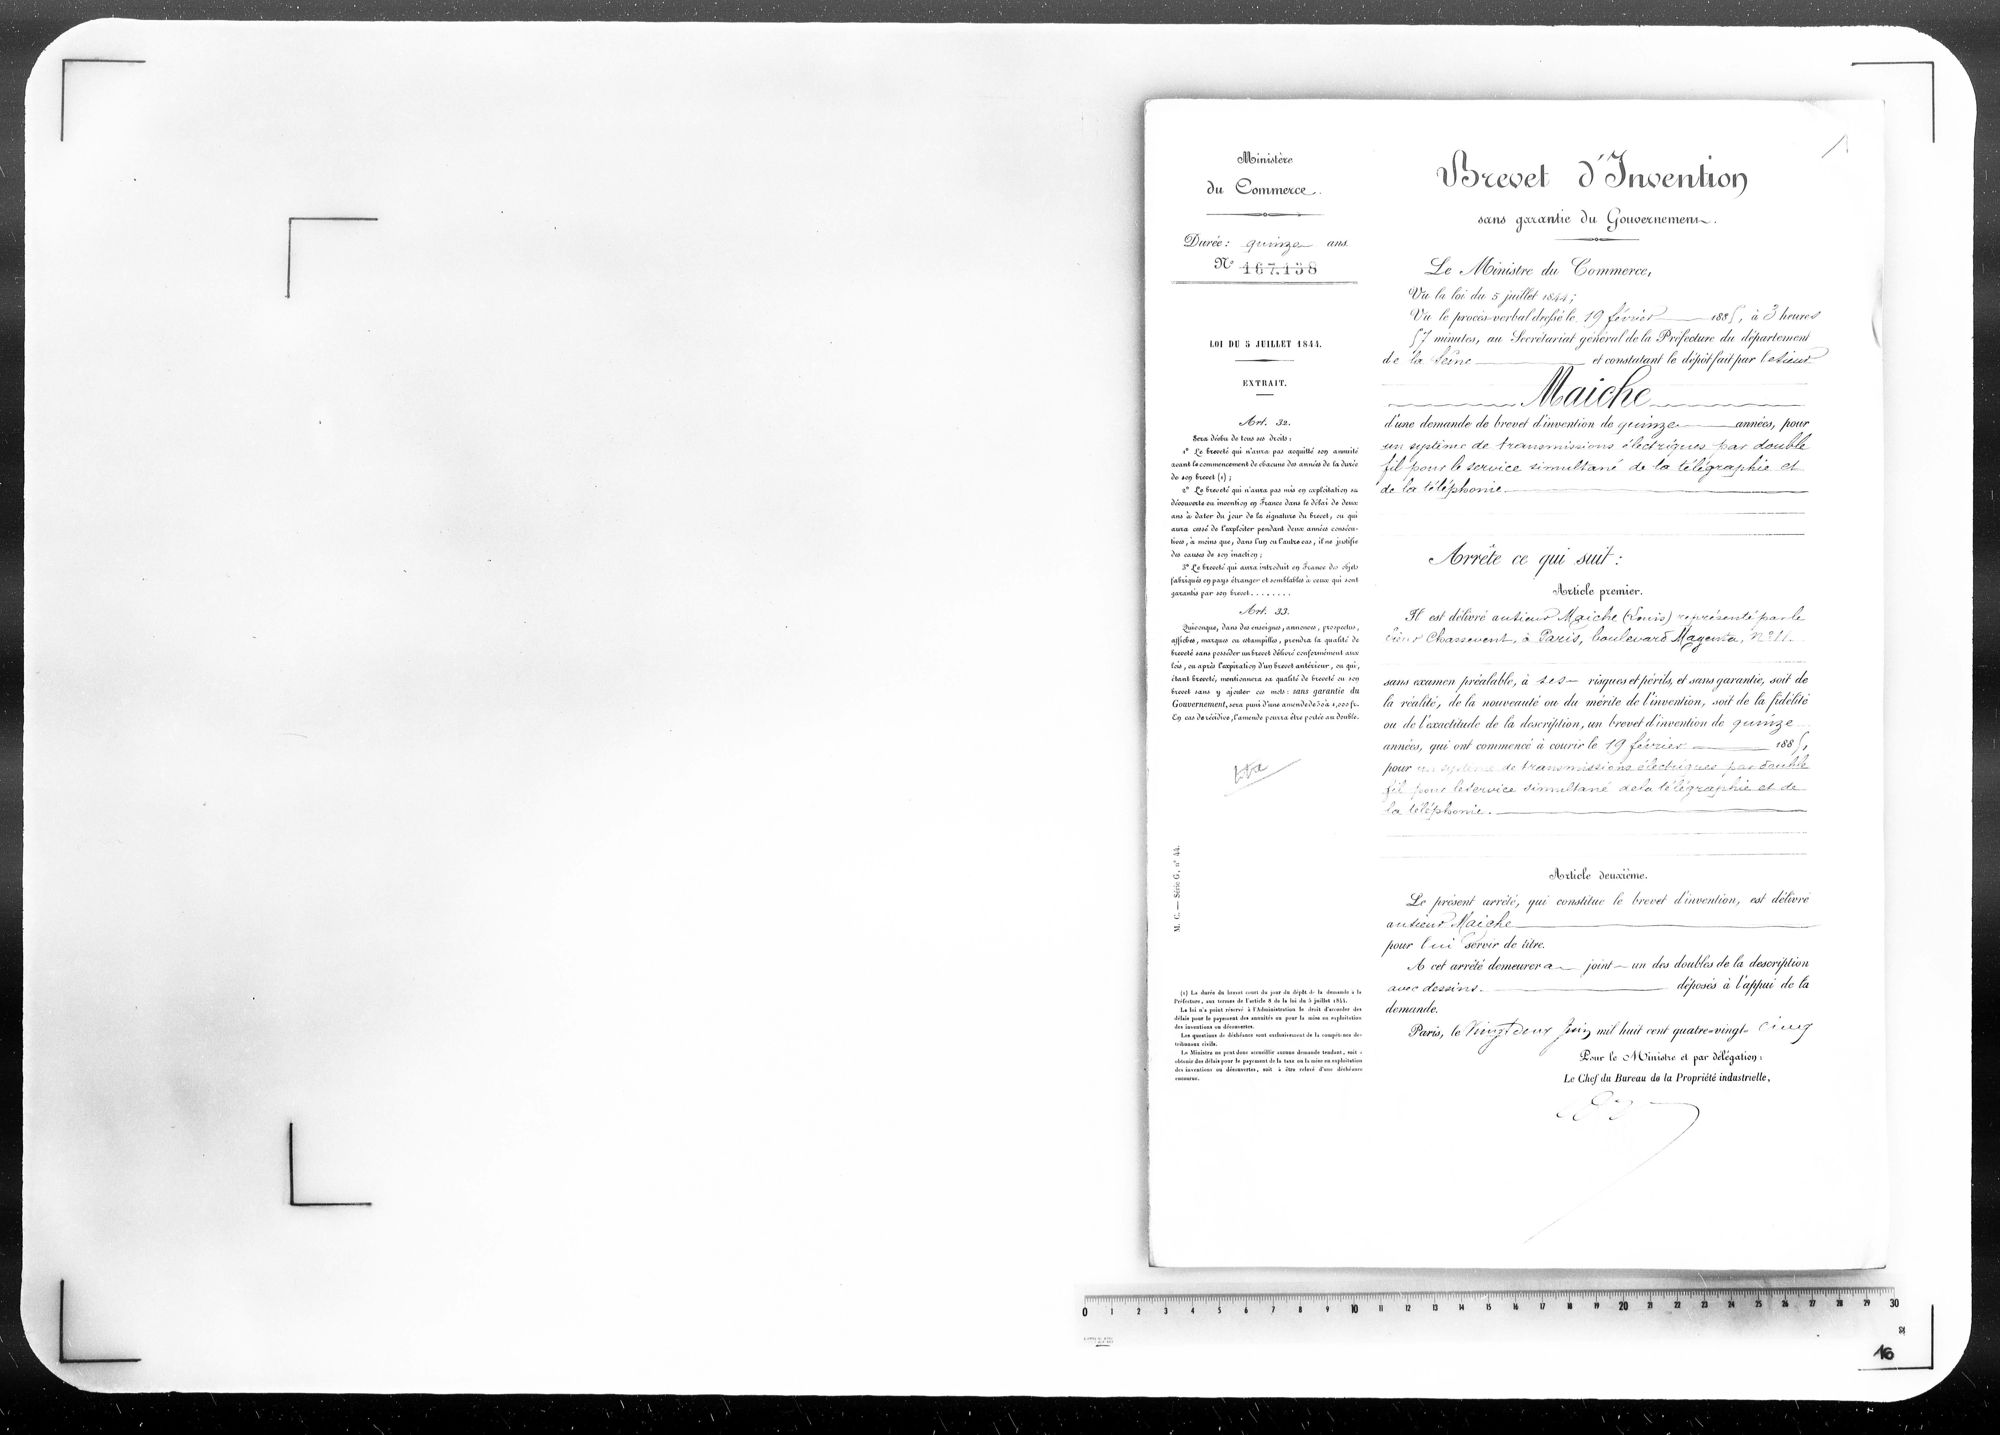 1
Ministère
du Commerce.
Durée: quinze ans.
N° 167.138
LOI DU 5 JUILLET 1844.
EXTRAIT.
Art. 32.
Sera déchu de tous ses droits:
1° Le breveté qui n'aura pas acquitté son annuité
avant le commencement de chacune des années de la durée
de son brevet (1);
2° Le breveté qui n'aura pas mis en exploitation sa
découverte ou invention en France dans le délai de deux
ans à dater du jour de la signature du brevet, ou qui
aura cessé de l'exploiter pendant deux années consécu-
tives, à moins que, dans l'un ou l'autre cas, il ne justifie
des causes de son inaction;
3° Le breveté qui aura introduit en France des objets
fabriqués en pays étranger et semblables à ceux qui sont
garantis par son brevet........
Art. 33.
Quiconque, dans des enseignes, annonces, prospectus,
affiches, marques ou estampilles, prendra la qualité de
breveté sans posséder un brevet délivré conformément aux
lois, ou après l'expiration d'un brevet antérieur, ou qui,
étant breveté, mentionnera sa qualité de breveté ou son
brevet sans y ajouter ces mots: sans garantie du
Gouvernement, sera puni d'une amende de 50 à 1,000 fr.
En cas de récidive, l'amende pourra être portée au double.
M. C. — Série G, n° 44.
(1) La durée du brevet court du jour du dépôt de la demande à la
Préfecture, aux termes de l'article 8 de la loi du 5 juillet 1844.
La loi n'a point réservé à l'Administration le droit d'accorder des
délais pour le payement des annuités ou pour la mise en exploitation
des inventions ou découvertes.
Les questions de déchéance sont exclusivement de la compétence des
tribunaux civils.
Le Ministre ne peut donc accueillir aucune demande tendant, soit à
obtenir des délais pour le payement de la taxe ou la mise en exploitation
des inventions ou découvertes, soit à être relevé d'une déchéance
encourue.
Brevet d'Invention
sans garantie du Gouvernement.
Le Ministre du Commerce,
Vu la loi du 5 juillet 1844;
Vu le procès-verbal dressé le 19 février 1885, à 3 heures
57 minutes, au Secrétariat général de la Préfecture du département
de la Seine et constatant le dépôt fait par le sieur
Maiche
d'une demande de brevet d'invention de quinze années, pour
un système de transmissions électriques par double
fil pour le service simultané de la télégraphie et
de la téléphonie.
Arrête ce qui suit:
Article premier.
Il est délivré au sieur Maiche (Louis) représenté par le
sieur Chassevent, à Paris, boulevard Magenta, n° 11.
sans examen préalable, à ses risques et périls, et sans garantie, soit de
la réalité, de la nouveauté ou du mérite de l'invention, soit de la fidélité
ou de l'exactitude de la description, un brevet d'invention de quinze
années, qui ont commencé à courir le 19 février 1885,
pour un système de transmissions électriques par double
fil pour le service simultané de la télégraphie et de
la téléphonie.
Article deuxième.
Le présent arrêté, qui constitue le brevet d'invention, est délivré
au sieur Maiche
pour lui servir de titre.
A cet arrêté demeurera joint un des doubles de la description
avec dessins. déposés à l'appui de la
demande.
Paris, le Vingt deux Juin mil huit cent quatre-vingt- cinq
Pour le Ministre et par délégation:
Le Chef du Bureau de la Propriété industrielle,
0 1 2 3 4 5 6 7 8 9 10 11 12 13 14 15 16 17 18 19 20 21 22 23 24 25 26 27 28 29 30
16